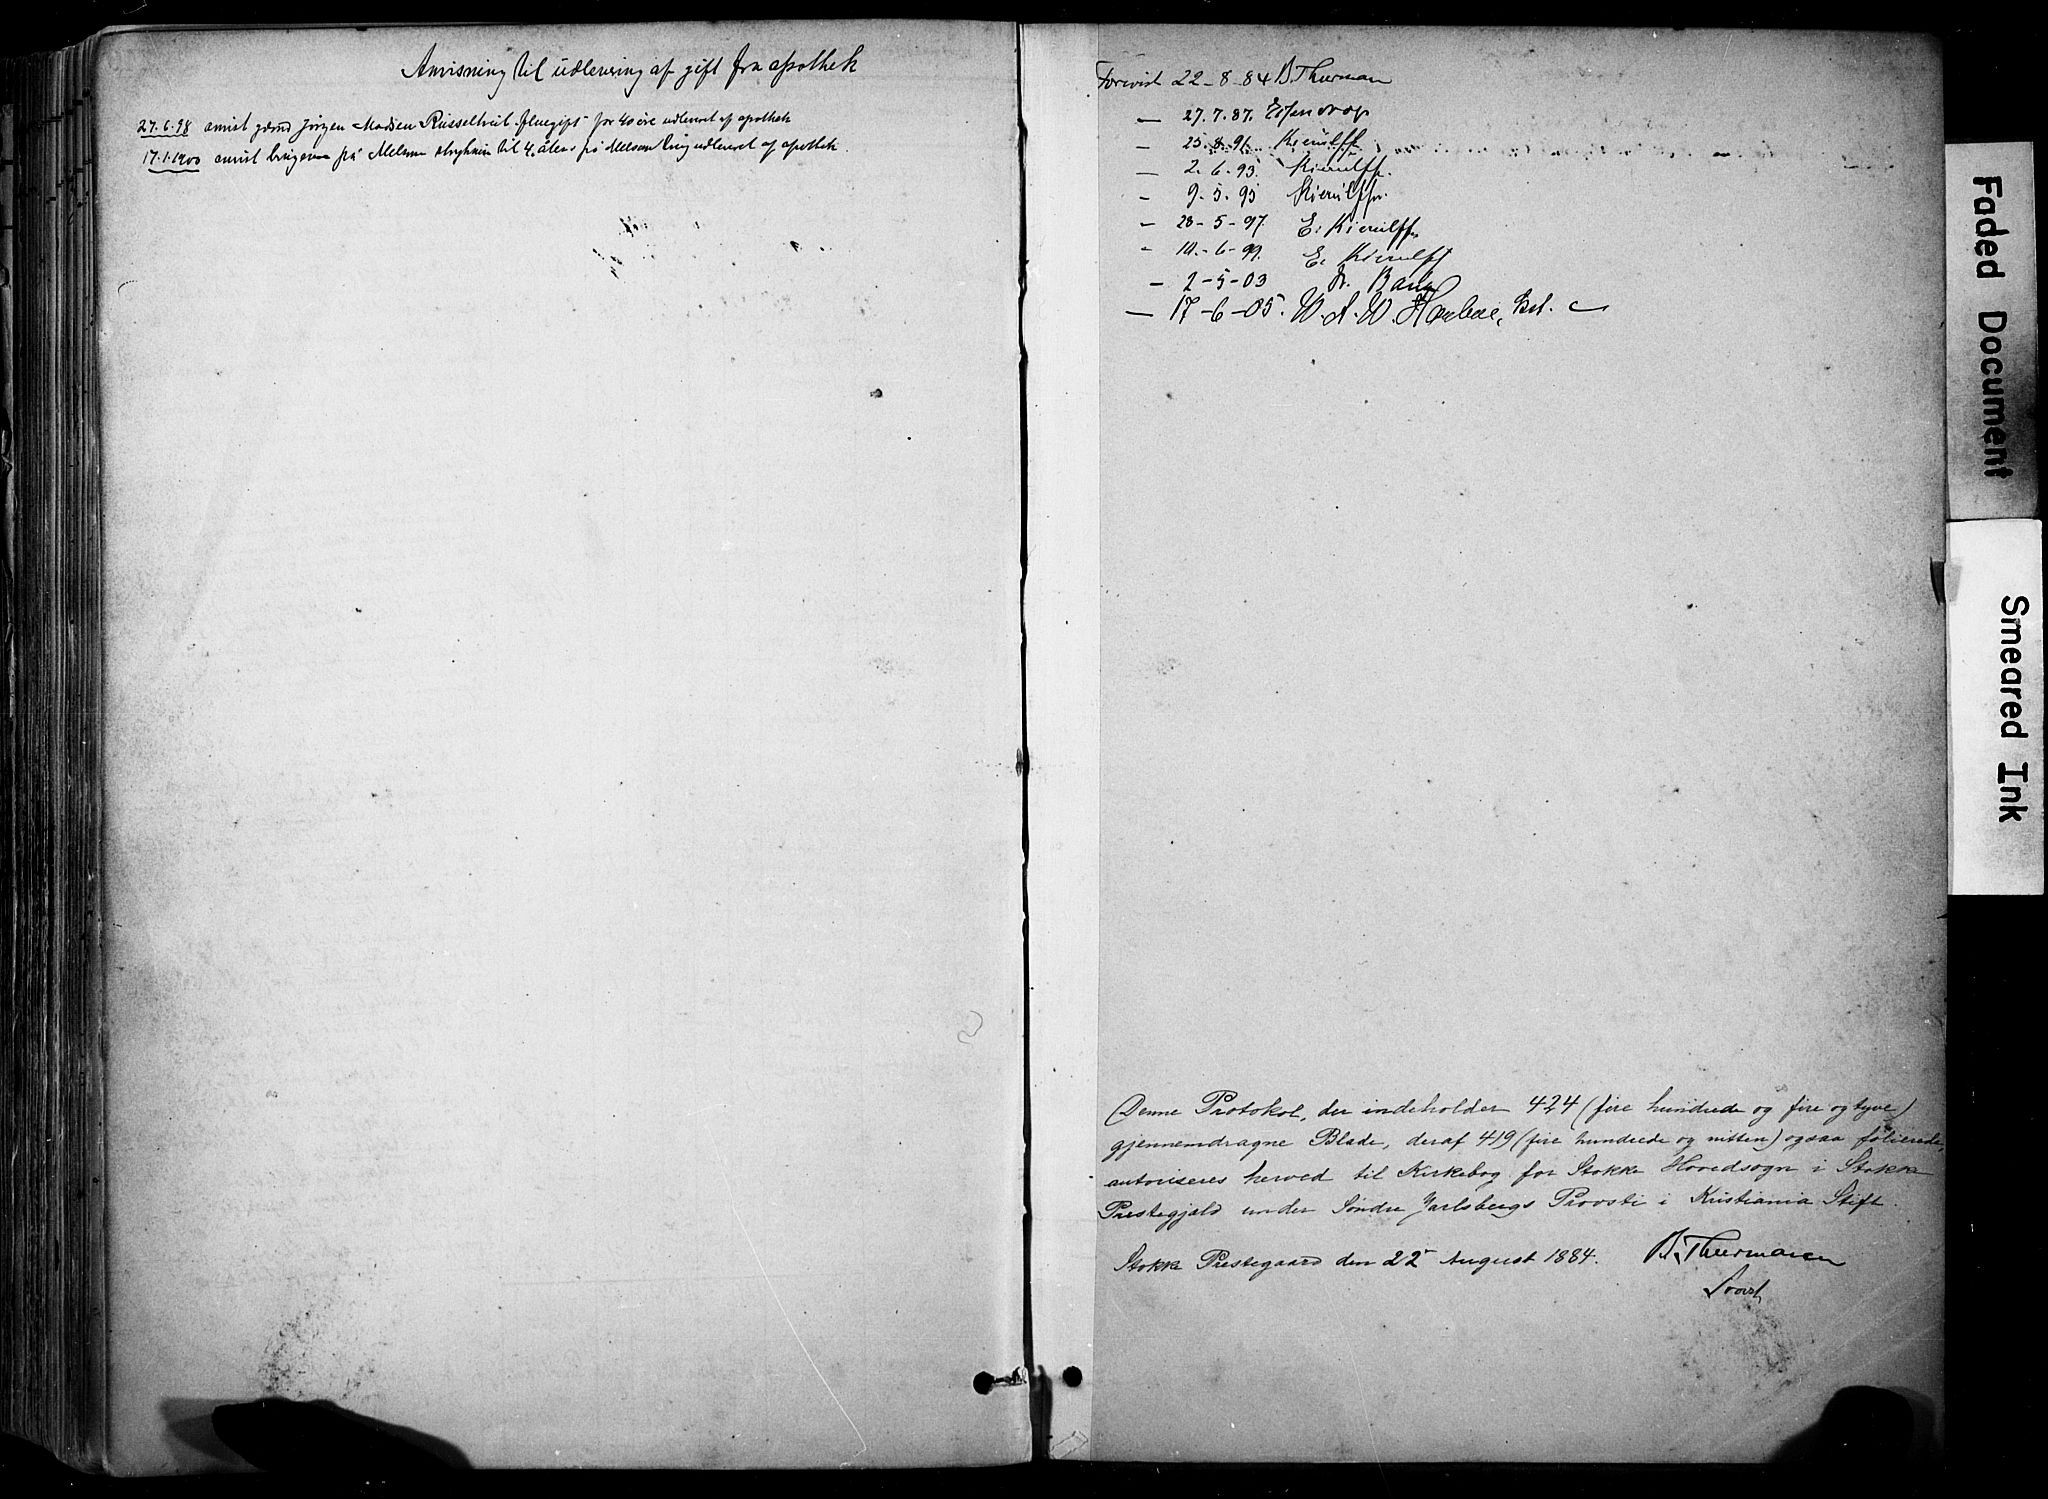 Anvisning til udlevering af gift fra apothek
27.6.98 anvist gbmd Jørgen Madsen Russeltvet fluegift for 40 øre udleveret af apothek
17.1.1900 anvist brugeren på Melsom stryknin til 4 åtler på Melsom udleveret af apothek.
Forevist 22-8-84 B Thurman
— 27.7.87.
— 25.8.91. Kierulff
— 2.6.93. Kierulff.
- 9.5.95 Kierulff.
- 28-5-97. E. Kierulff
- 10.-6-99. E. Kierulff
- 2-5-03 Bang
— 17-6-05. W. A. W.
Denne Protokol, der indeholder 424 (fire hundrede og fire og tyve)
gjennemdragne Blade, deraf 419 (fire hundrede og nitten) ogsaa folierede,
autoriseres herved til Kirkebog for Stokke Hovedsogn i Stokke
Prestegjæld under Søndre Jarlsbergs Provsti i Kristiania Stift.
Stokke Prestegaard den 22 August 1884. B. Thurmann
Provst
Faded Document
Smeared Ink